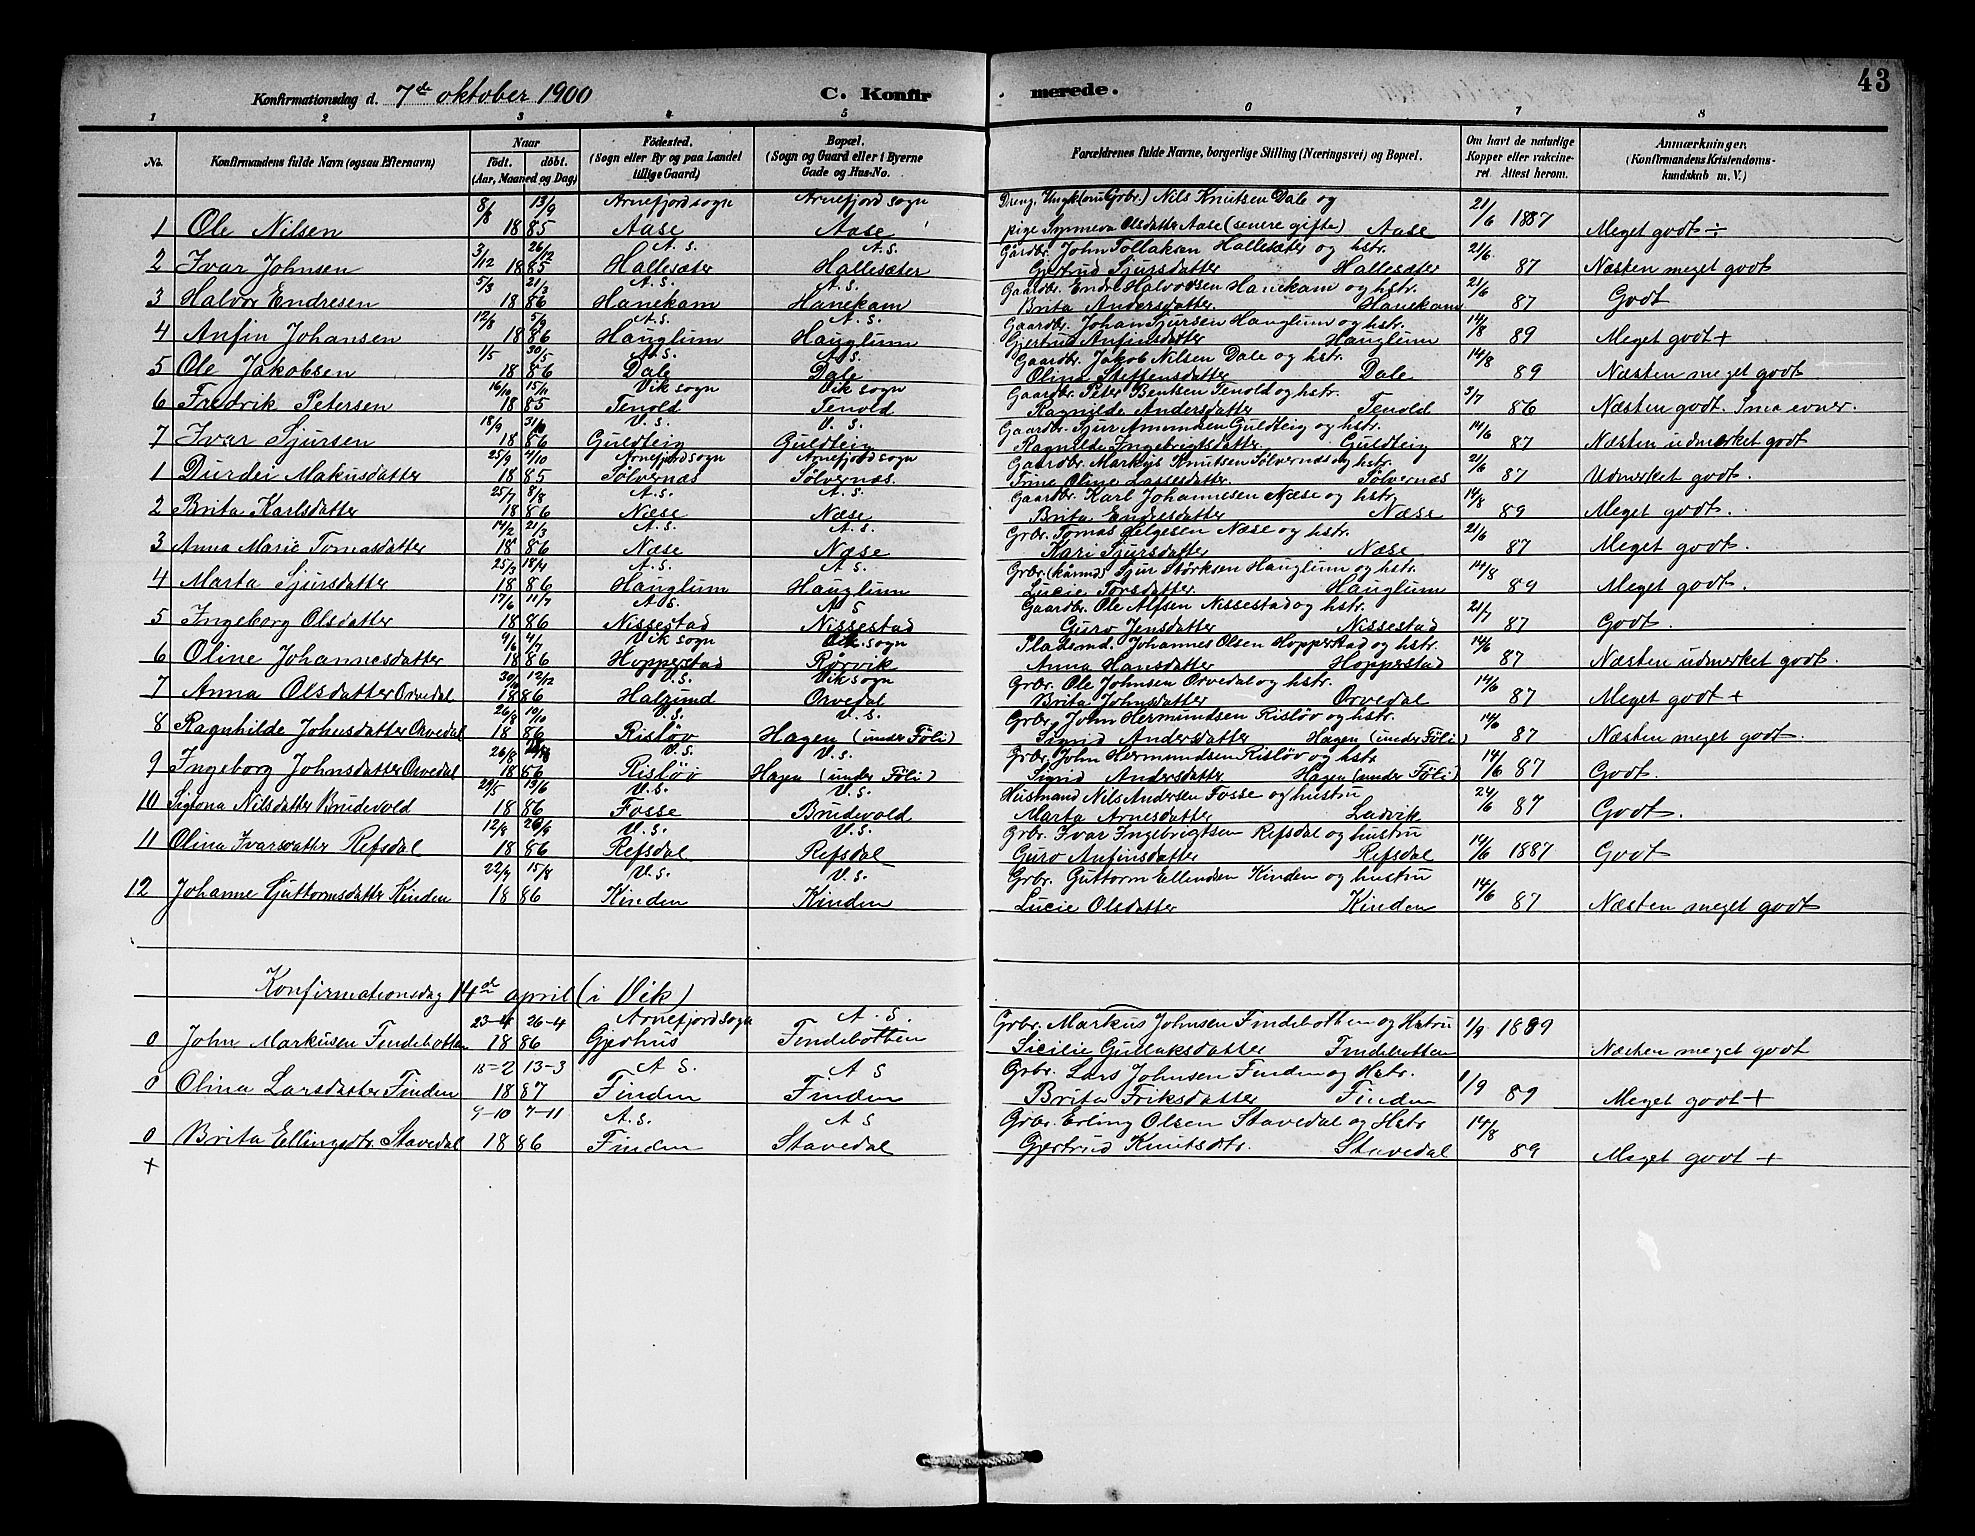 43
Konfirmationsdag d. 7de oktober 1900 C. Konfir merede.
1 2 3 4 5 6 7 8
No. Konfirmandens fulde Navn (ogsaa Efternavn) Naar födt. döbt. (Aar, Maaned og Dag) Födested. (Sogn eller By og paa Landet tillige Gaard) Bopæl. (Sogn og Gaard eller i Byerne Gade og Hus-No. Forældrenes fulde Navne, borgerlige Stilling (Næringsvei) og Bopæl. Om havt de naturlige Kopper eller vakcineret. Attest herom. Anmærkninger. (Konfirmandens Kristendomskundskab m. V.)
8/8 13/9 Arnefjord sogn Arnefjord sogn Dreng. Ungk (nu Grbr.) Nils Knutsen Dale og 21/6 1887
1 Ole Nilsen 1885 Aase Aase pige Synneva Olsdatter Aase (senere gifte) Aase Meget godt ÷
3/12 26/12 A. S. A. S. Gårdbr. John Tollaksen Hallesæter og hstr. 21/6
2 Ivar Johnsen 1885 Hallesæter Hallesæter Gjertrud Sjursdatter Hallesæter 87 Næsten meget godt
5/3 21/3 A. S. A. S. Gaardbr. Endre Halvorsen Hanekam og hstr. 21/6
3 Halvor Endresen 1886 Hanekam Hanekam Brita Andersdatter Hanekam 87 Godt
12/8 5/9 A. S. A. S. Gaardbr. Johan Sjursen Hauglum og hstr. 14/8
4 Anfin Johansen 1886 Hauglum Hauglum Gjertrud Anfinsdatter Hauglum 89 Meget godt +
1/5 30/5 A. S. A. S. Gaardbr. Jakob Nilsen Dale og hstr. 14/8
5 Ole Jakobsen 1886 Dale Dale Olina Steffensdatter Dale 89 Næsten meget godt
15/11 Vik sogn Vik sogn Gaardbr. Peter Bentsen Tenold og hstr. 3/7
6 Fredrik Petersen 1885 Tenold Tenold Ragnilde Andersdatter Tenold 86 Næsten godt. Smaa evner.
18/9 31/10 V. S. V. S. Gaardbr. Sjur Amundsen Guldteig og hstr. 14/6
7 Ivar Sjursen 1886 Guldteig Guldteig Ragnilde Ingebrigtsdatter Guldteig 87 Næsten udmærket godt
25/9 4/10 Arnefjord sogn Arnefjord sogn Gaardbr. Markus Knutsen Sølvernæs og hstr. 21/6
1 Durdei Makusdatter 1885 Sølvernæs Sølvernæs Trine Oline Lassesdatter Sølvernæs 87 Udmerket godt
25/7 8/8 A. S. A. S. Gaardbr. Karl Johannesen Næse og hstr. 14/8
2 Brita Karlsdatter 1886 Næse Næse Brita Endresdatter Næse 89 Meget godt.
14/2 21/3 A. S. A. S. Grbr. Tomas Helgesen Næse og hstr. 21/6
3 Anna Marie Tomasdatter 1886 Næse Næse Kari Sjursdatter Næse 87 Meget godt.
25/3 18/4 A. S. A. S. Grbr. (kårmd) Sjur Störksen Hauglum og hstr. 14/8
4 Marta Sjursdatter 1886 Hauglum Hauglum Lucie Torsdatter Hauglum 89 Meget godt.
17/6 11/7 A S. A S Gaardbr. Ole Alfsen Nissestad og hstr. 21/7
5 Ingeborg Olsdatter 1886 Nissestad Nissestad Guro Jensdatter Nissestad 87 Godt.
9/6 4/7 Vik sogn Vik sogn Pladsmd. Johannes Olsen Hopperstad og hstr. 14/6
6 Oline Johannesdatter 1886 Hopperstad Rørvik Anna Hansdatter Hopperstad 87 Næsten udmerket godt.
12/12 V. S. Vik sogn Grbr. Ole Johnsen Orvedal og hstr. 14/6
7 Anna Olsdatter Orvedal 1886 Halsund Orvedal Brita Johnsdatter Orvedal 87 Meget godt +
26/8 10/10 V. S. V. S. Grbr. John Hermundsen Risløv og hstr. 14/6
8 Ragnhilde Johnsdatter Orvedal 1886 Risløv Hagen (under Föli) Sigrid Andersdatter Hagen (under Föli) 87 Næsten meget godt.
26/8 V. S. V. S. Grbr. John Hermundsen Risløv og hstr 14/6
9 Ingeborg Johnsdatter Orvedal 1886 Risløv Hagen (under Föli) Sigrid Andersdatter Hagen (under Föli) 87 Godt.
29/5 13/6 V. S. V. S. Husmand Nils Andersen Fosse og hustru 24/6
10 Sigtona Nilsdatter Brudevold 1886 Fosse Brudevold Marta Arnesdatter Ladvik 87 Godt.
12/8 26/9 V. S. V. S. Grbr. Ivar Ingebrigtsen Refsdal og hustru 14/6
11 Olina Ivarsdatter Refsdal 1886 Refsdal Refsdal Guro Anfinsdatter Refsdal 1887 Godt
22/7 15/8 V. S. V. S. Grbr. Guttorm Ellendsen Kinden og hustru 14/6
12 Johanne Guttormsdatter Kinden 1886 Kinden Kinden Lucie Olsdatter Kinden 87 Næsten meget godt
Konfirmationsdag 14de april (i Vik)
23-4 26-4 Arnefjord sogn A. S. Grbr. Markus Johnsen Findebotten og Hstru 1/9 1889
0 John Markusen Findebotten 1886 Gjerhus Findebotten Sicilie Gullaksdatter Findebotten Næsten meget godt
15-2 13-3 A S. A S Grbr. Lars Johnsen Finden og Hstr. 1/9
0 Olina Larsdatter Finden 1887 Finden Finden Brita Eriksdatter Finden 89 Meget godt +
9-10 7-11 A. S. A S Grbr. Erling Olsen Stavedal og Hstr 14/8
0 Brita Ellingsdtr. Stavedal 1886 Finden Stavedal Gjertrud Knutsdtr. Stavedal 89 Meget godt +
+